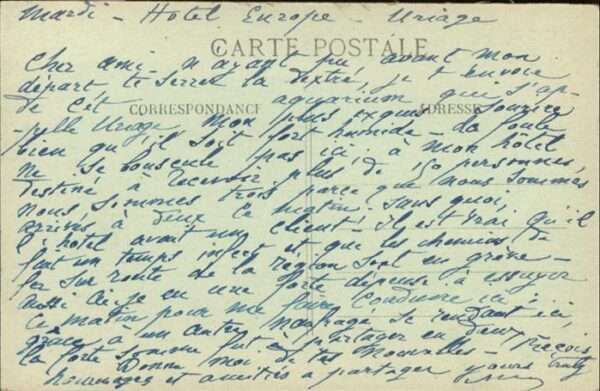 Mardi - Hotel Europe - Uriage
CARTE POSTALE
Cher ami - n'ayant pu, avant mon
départ, te serrer la dextre, je t'envoie
de cet aquarium qui s'ap-
CORRESPONDANCE ADRESSE
pelle Uriage mon plus exquis sourire
bien qu'il soit fort humide - La foule
ne se bouscule pas ici: à mon hôtel,
destiné à recevoir plus de 150 personnes,
nous sommes trois parce que nous sommes
arrivés à deux ce matin: sans quoi,
l'hôtel avait un client! Il est vrai qu'il
fait un temps infect et que les chemins de
fer sur route de la région sont en grève -
aussi ai-je eu une forte dépense à essuyer
ce matin pour me faire conduire ici:
grâce à un autre naufragé se rendant ici,
la forte somme fut à partager en deux
Donne moi de tes nouvelles - Reçois
hommages et amitiés à partager yours truly